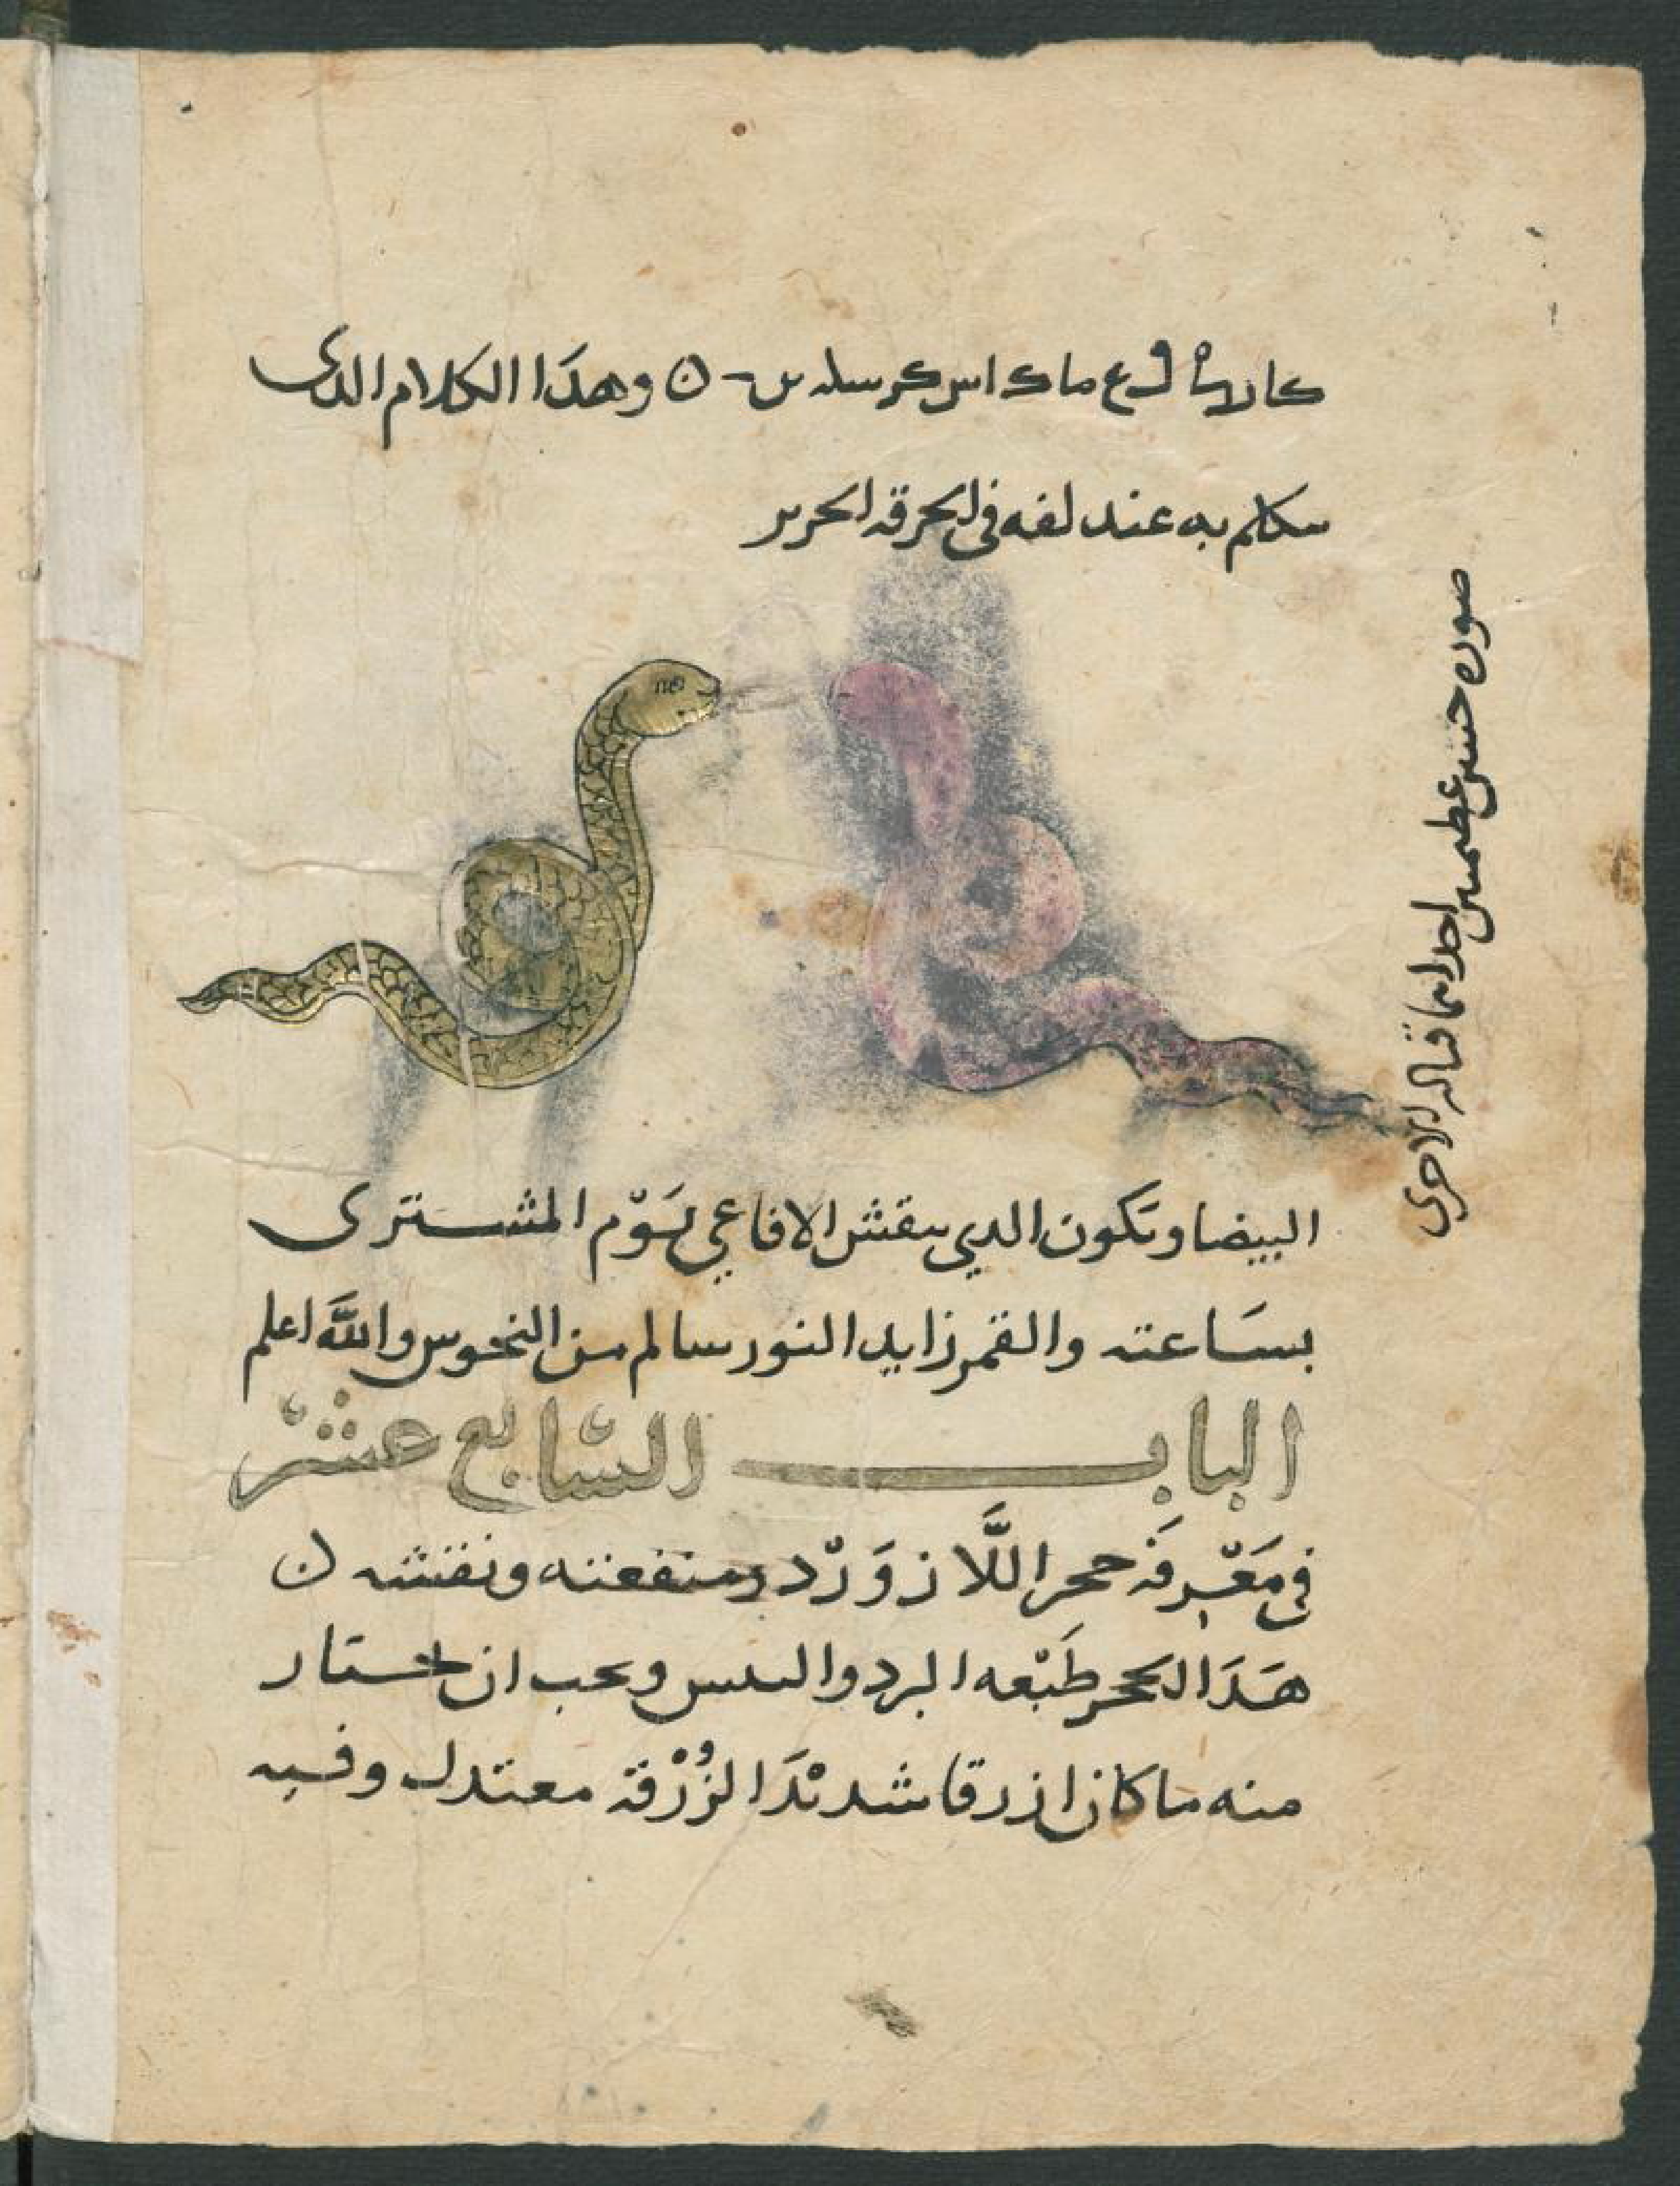 وهدا الكلام الدى
سكلم به عند لفه فى الحرقه الحرير
صوره حنشين عظيمين احداهما قباله الاخرى
البيضا وتكون الدي ينقش الافاعي يوم المشترى
بساعته والقمر زايد النور سالم من النحوس والله اعلم
الباب السابع عشر
في معرفة حجر اللازورد ومنفعته ونقشه
هذا الحجر طبعه البرد واليبس ويجب ان يختار
منه ما كان ازرقا شديدا الزرقة معتدل وفيه